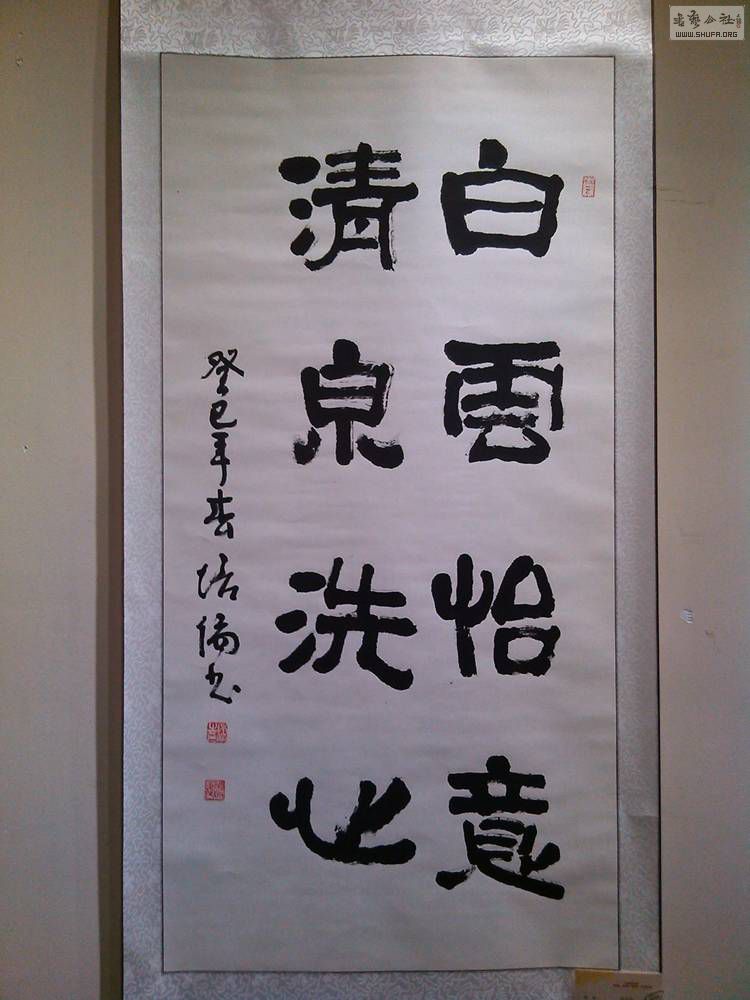 白雲怡意
清泉洗心
癸巳年春培倫书
书艺公社
WWW.SHUFA.ORG